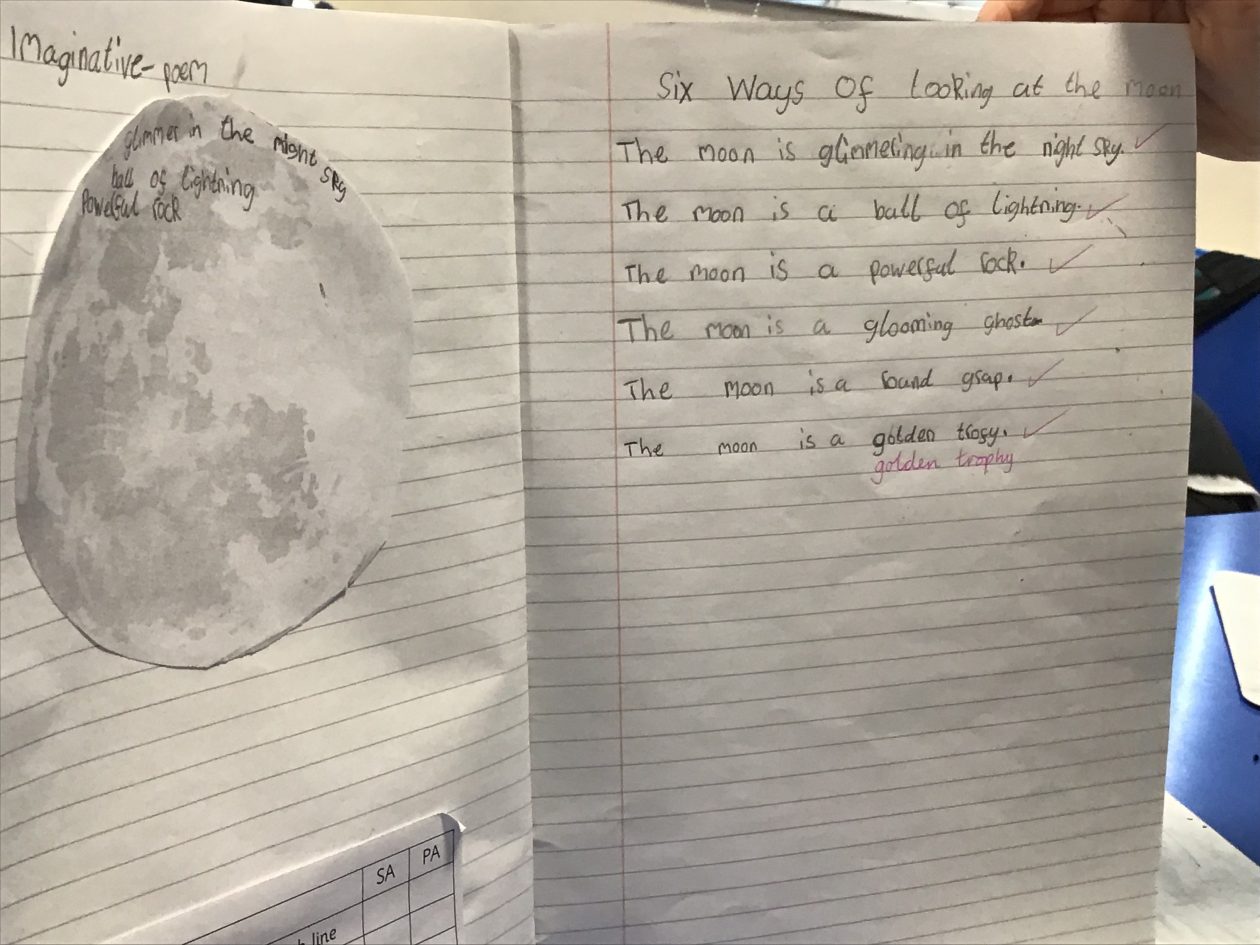 Imaginative-poem
glimmer in the night sky
ball of lightning
Powerful rock
Six Ways Of Looking at the moon
The moon is glimmering in the night sky.
The moon is a ball of lightning.
The moon is a powerful rock.
The moon is a glooming ghost
The moon is a round grap.
The moon is a golden trogy.
golden trophy
SA PA
line